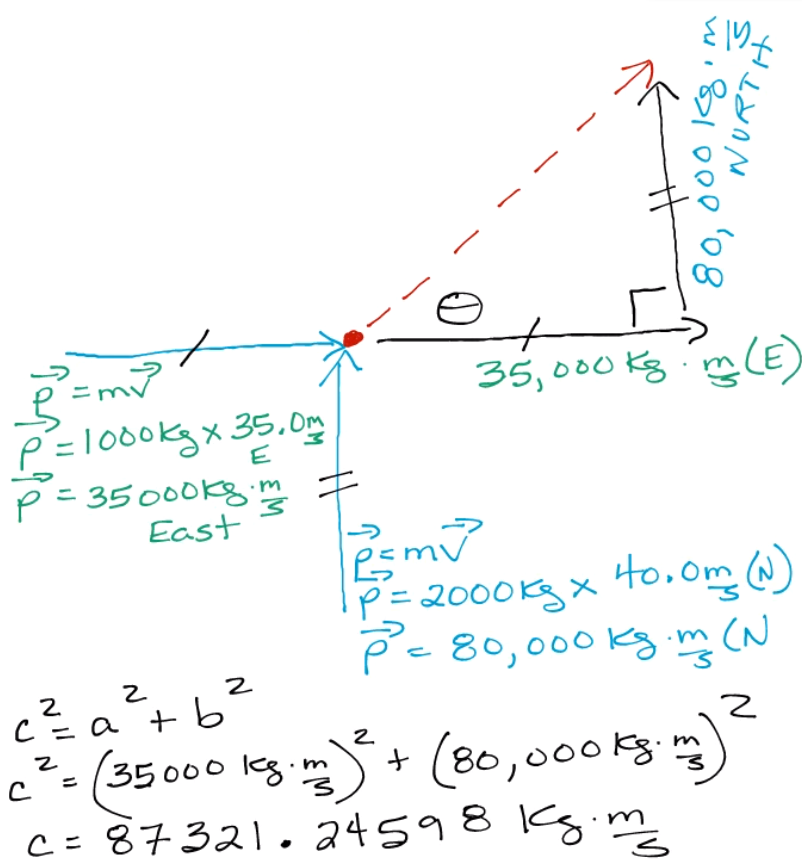 80,000 kg·m/s
NORTH
θ
35,000 kg·m/s (E)
p⃗ = mv⃗
p⃗ = 1000kg × 35.0m/s
E
p⃗ = 35000kg·m/s
East
p⃗ = mv⃗
p⃗ = 2000kg × 40.0m/s (N)
p⃗ = 80,000 kg·m/s (N
c² = a² + b²
c² = (35000 kg·m/s)² + (80,000 kg·m/s)²
c = 87321.24598 kg·m/s